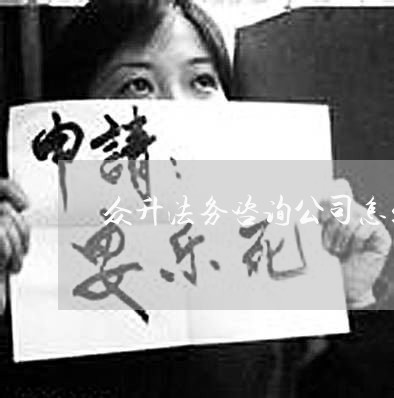 申請：
众升法务咨询公司怎
安乐死